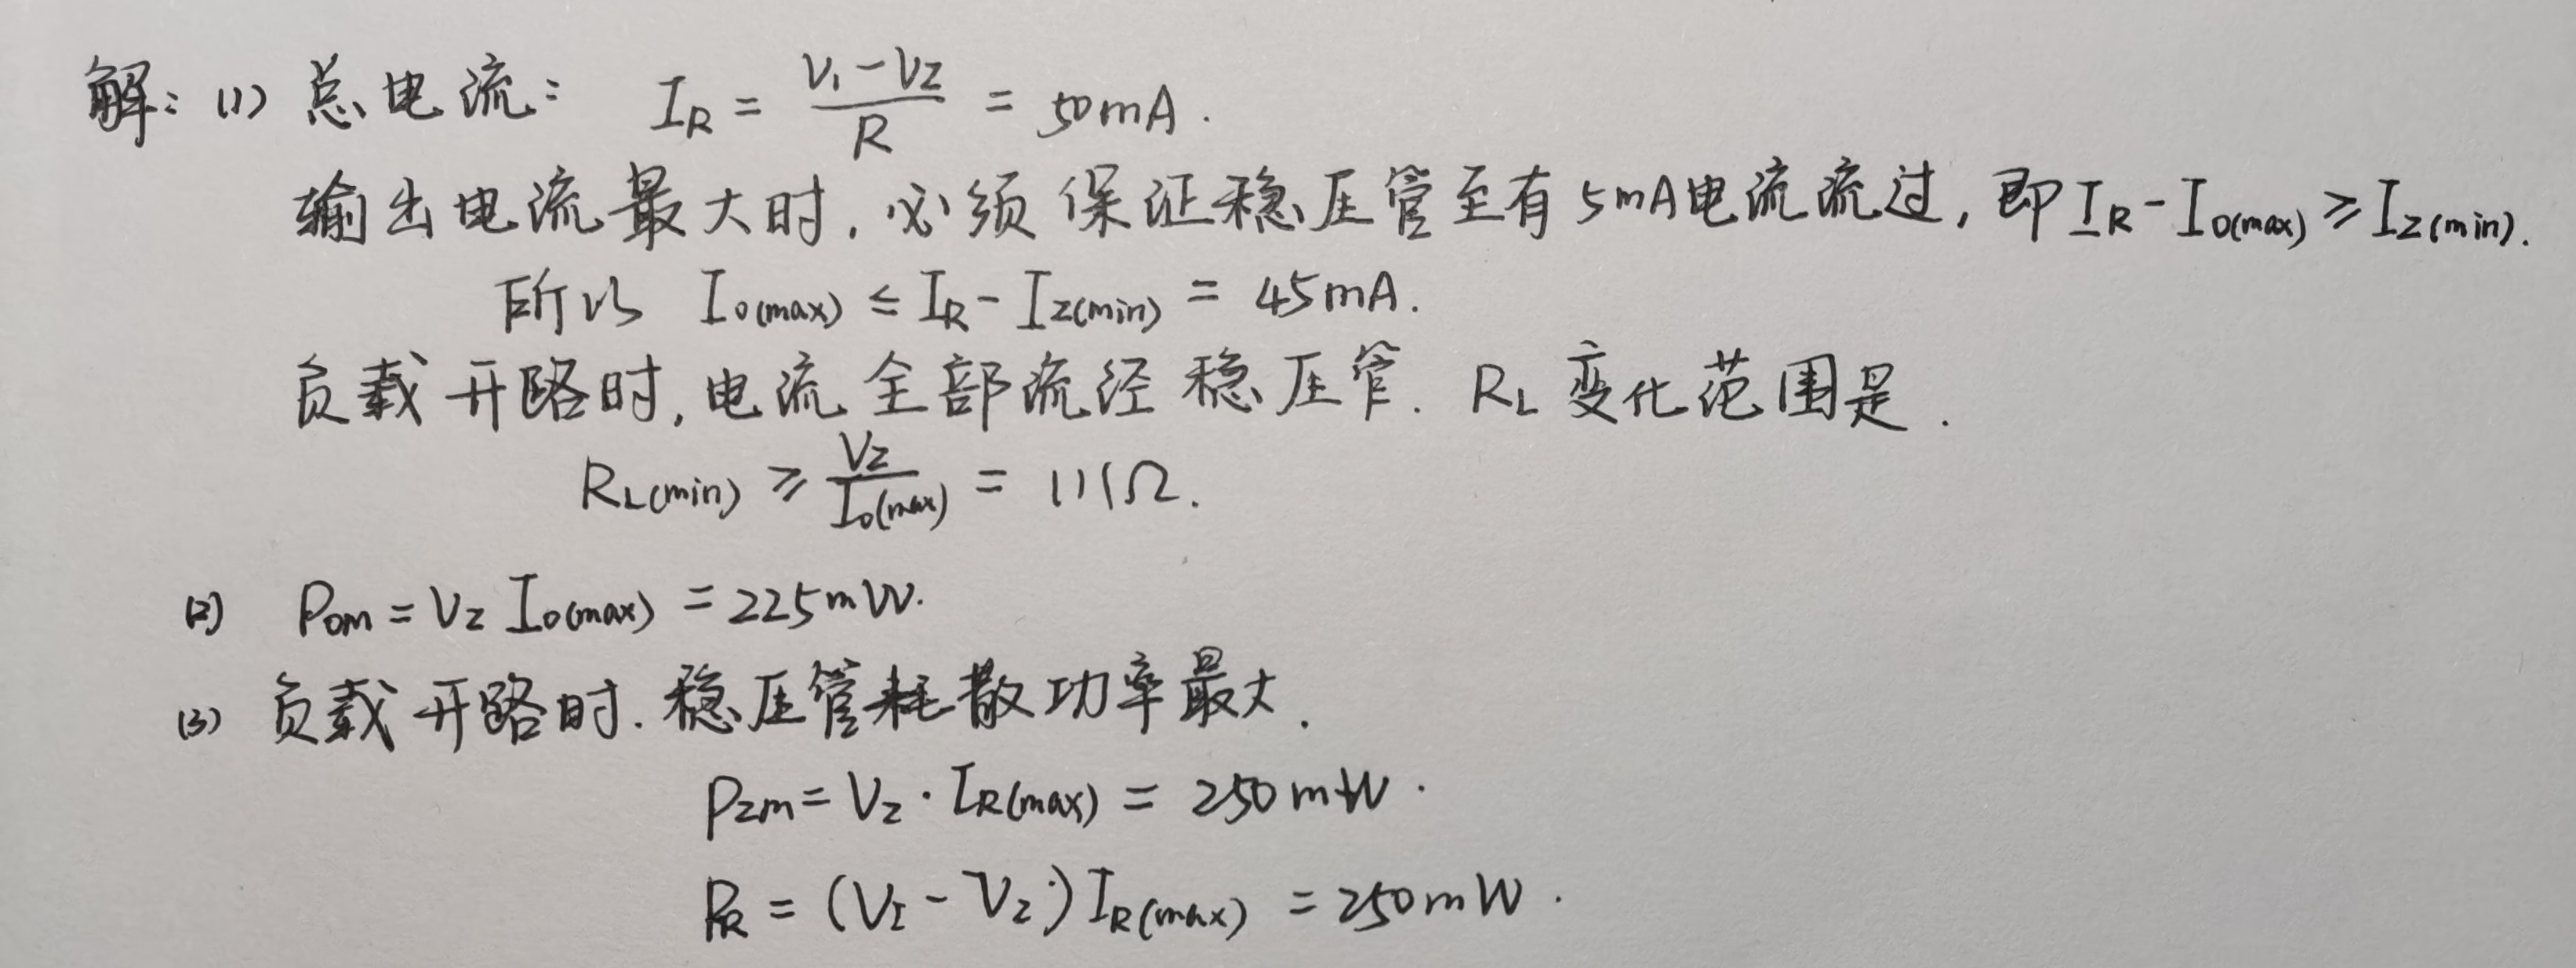 解：(1) 总电流： I_R = (V_1 - V_Z)/R = 50mA.
输出电流最大时，必须保证稳压管至有5mA电流流过，即 I_R - I_o(max) ≥ I_Z(min).
所以 I_o(max) ≤ I_R - I_Z(min) = 45mA.
负载开路时，电流全部流经稳压管. R_L 变化范围是.
R_L(min) ≥ V_Z/I_o(max) = 111Ω.
(2) P_om = V_Z I_o(max) = 225mW.
(3) 负载开路时. 稳压管耗散功率最大.
P_Zm = V_Z · I_R(max) = 250mW.
P_R = (V_I - V_Z) I_R(max) = 250mW.